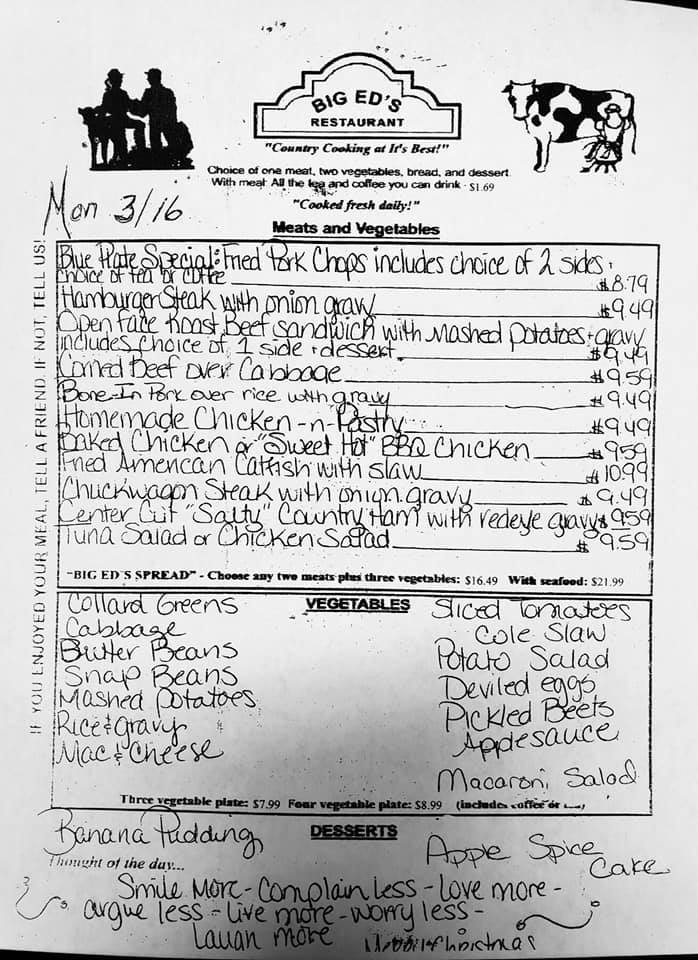 BIG ED'S
RESTAURANT
"Country Cooking at It's Best!"
Choice of one meat, two vegetables, bread, and dessert
With meat: All the tea and coffee you can drink - $1.69
"Cooked fresh daily!"
Mon 3/16
Meats and Vegetables
IF YOU ENJOYED YOUR MEAL, TELL A FRIEND. IF NOT, TELL US!
Blue Plate Special: Fried Pork Chops includes choice of 2 sides +
choice of tea or coffee $8.79
Hamburger Steak with onion gravy $9.49
Open face Roast Beef sandwich with Mashed Potatoes + gravy
includes choice of 1 side + dessert. $9.49
Corned Beef over Cabbage $9.59
Bone-In Pork over rice with gravy $9.49
Homemade Chicken-n-Pastry $9.49
Baked Chicken or "Sweet Hot" BBQ Chicken $9.59
Fried American Catfish with slaw $10.99
Chuckwagon Steak with onion gravy $9.49
Center Cut "Salty" Country Ham with redeye gravy $9.59
Tuna Salad or Chicken Salad $9.59
"BIG ED'S SPREAD" - Choose any two meats plus three vegetables: $16.49 With seafood: $21.99
VEGETABLES
Collard Greens
Cabbage
Butter Beans
Snap Beans
Mashed Potatoes
Rice & gravy
Mac & Cheese
Sliced Tomatoes
Cole Slaw
Potato Salad
Deviled eggs
Pickled Beets
Applesauce
Macaroni Salad
Three vegetable plate: $7.99 Four vegetable plate: $8.99 (includes coffee or
DESSERTS
Banana Pudding
Apple Spice
Cake
Thought of the day...
Smile More - Complain less - Love more -
argue less - Live more - worry less -
Laugh more